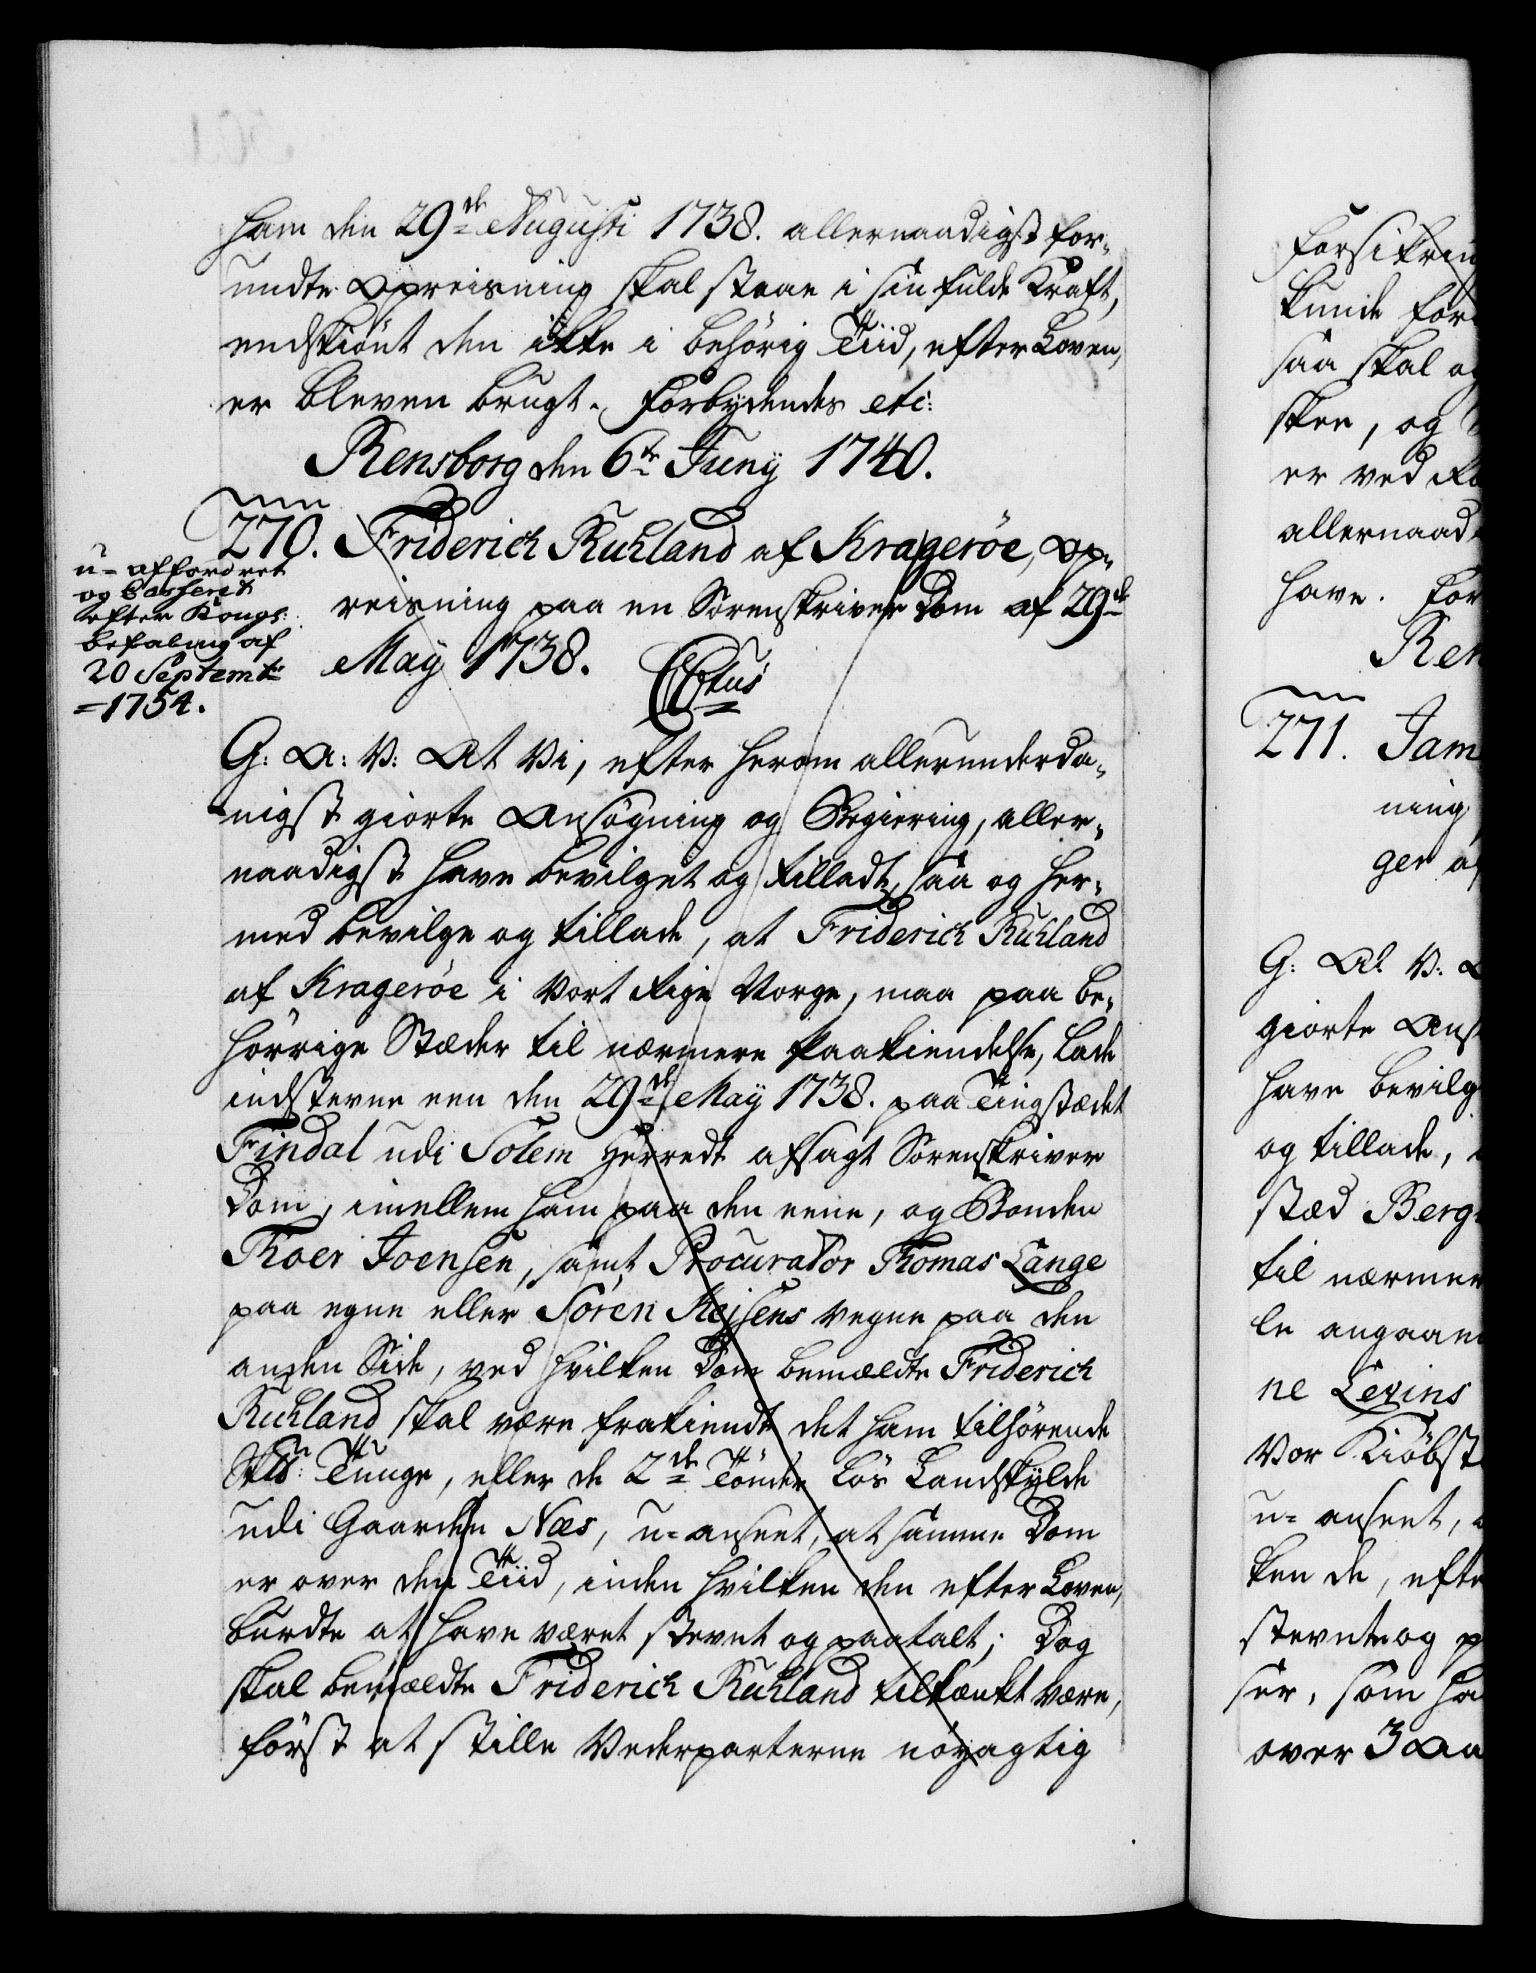 ham den 29de Augusti 1738. allernaadigst for-
undte Opreisning skal staae i sin fulde Kraft,
endskiönt den ikke i behörig Tiid, efter Loven,
er bleven brugt. Forbydendes etc:
Rensborg den 6te Juny 1740.
270. Friderich Ruhland af Krageröe, Op-
reisning paa en Sorenskriver Dom af 29de
May 1738.
u-affordret
og Casseret
efter Kongs:
befaling af
20 Septembr
=1754.
G: A: V: At Vi, efter herom allerunderda-
nigst giorte Ansögning og Begiering, aller-
naadigst have bevilget og tilladt, saa og her-
med bevilge og tillade, at Friderich Ruhland
af Krageröe i Vort Rige Norge, maa paa be-
hörrige Stæder til nærmere Paakiendelse, lade
indstevne een den 29de May 1738. paa Tingstædet
Findal udi Solem Herredt afsagt Sorenskriver
Dom, imellem ham paa den eene, og Bonden
Thoer Joensen, samt Procurator Thomas Lange
paa egne eller Sören Rejsens vegne paa den
anden Side, ved hvilken Dom bemældte Friderich
Ruhland skal være frakiendt det ham tilhörende
Tunge, eller de 2de Tönder Løs Landskylde
udi Gaarden Næs, u-anseet, at samme Dom
er over den Tiid, inden hvilken den efter Loven,
burdte at have været stevnt og paatalt; Dog
skal bemældte Friderich Ruhland tiltænkt være,
först at stille Vederparterne nöyagtig
forsikring
kunde for
saa skal og
skee, og
er ved
allernaad
have. For
Ren
271. Jam
ning
ger af
G: At V:
giorte Ans
have bevilg
og tillade,
stæd Berg
til nærmer
le angaaen
ne Levins
Vor Kiöbst
u-anseet,
ken de, efte
stevnte og p
ser, som ha
over 3 Aa